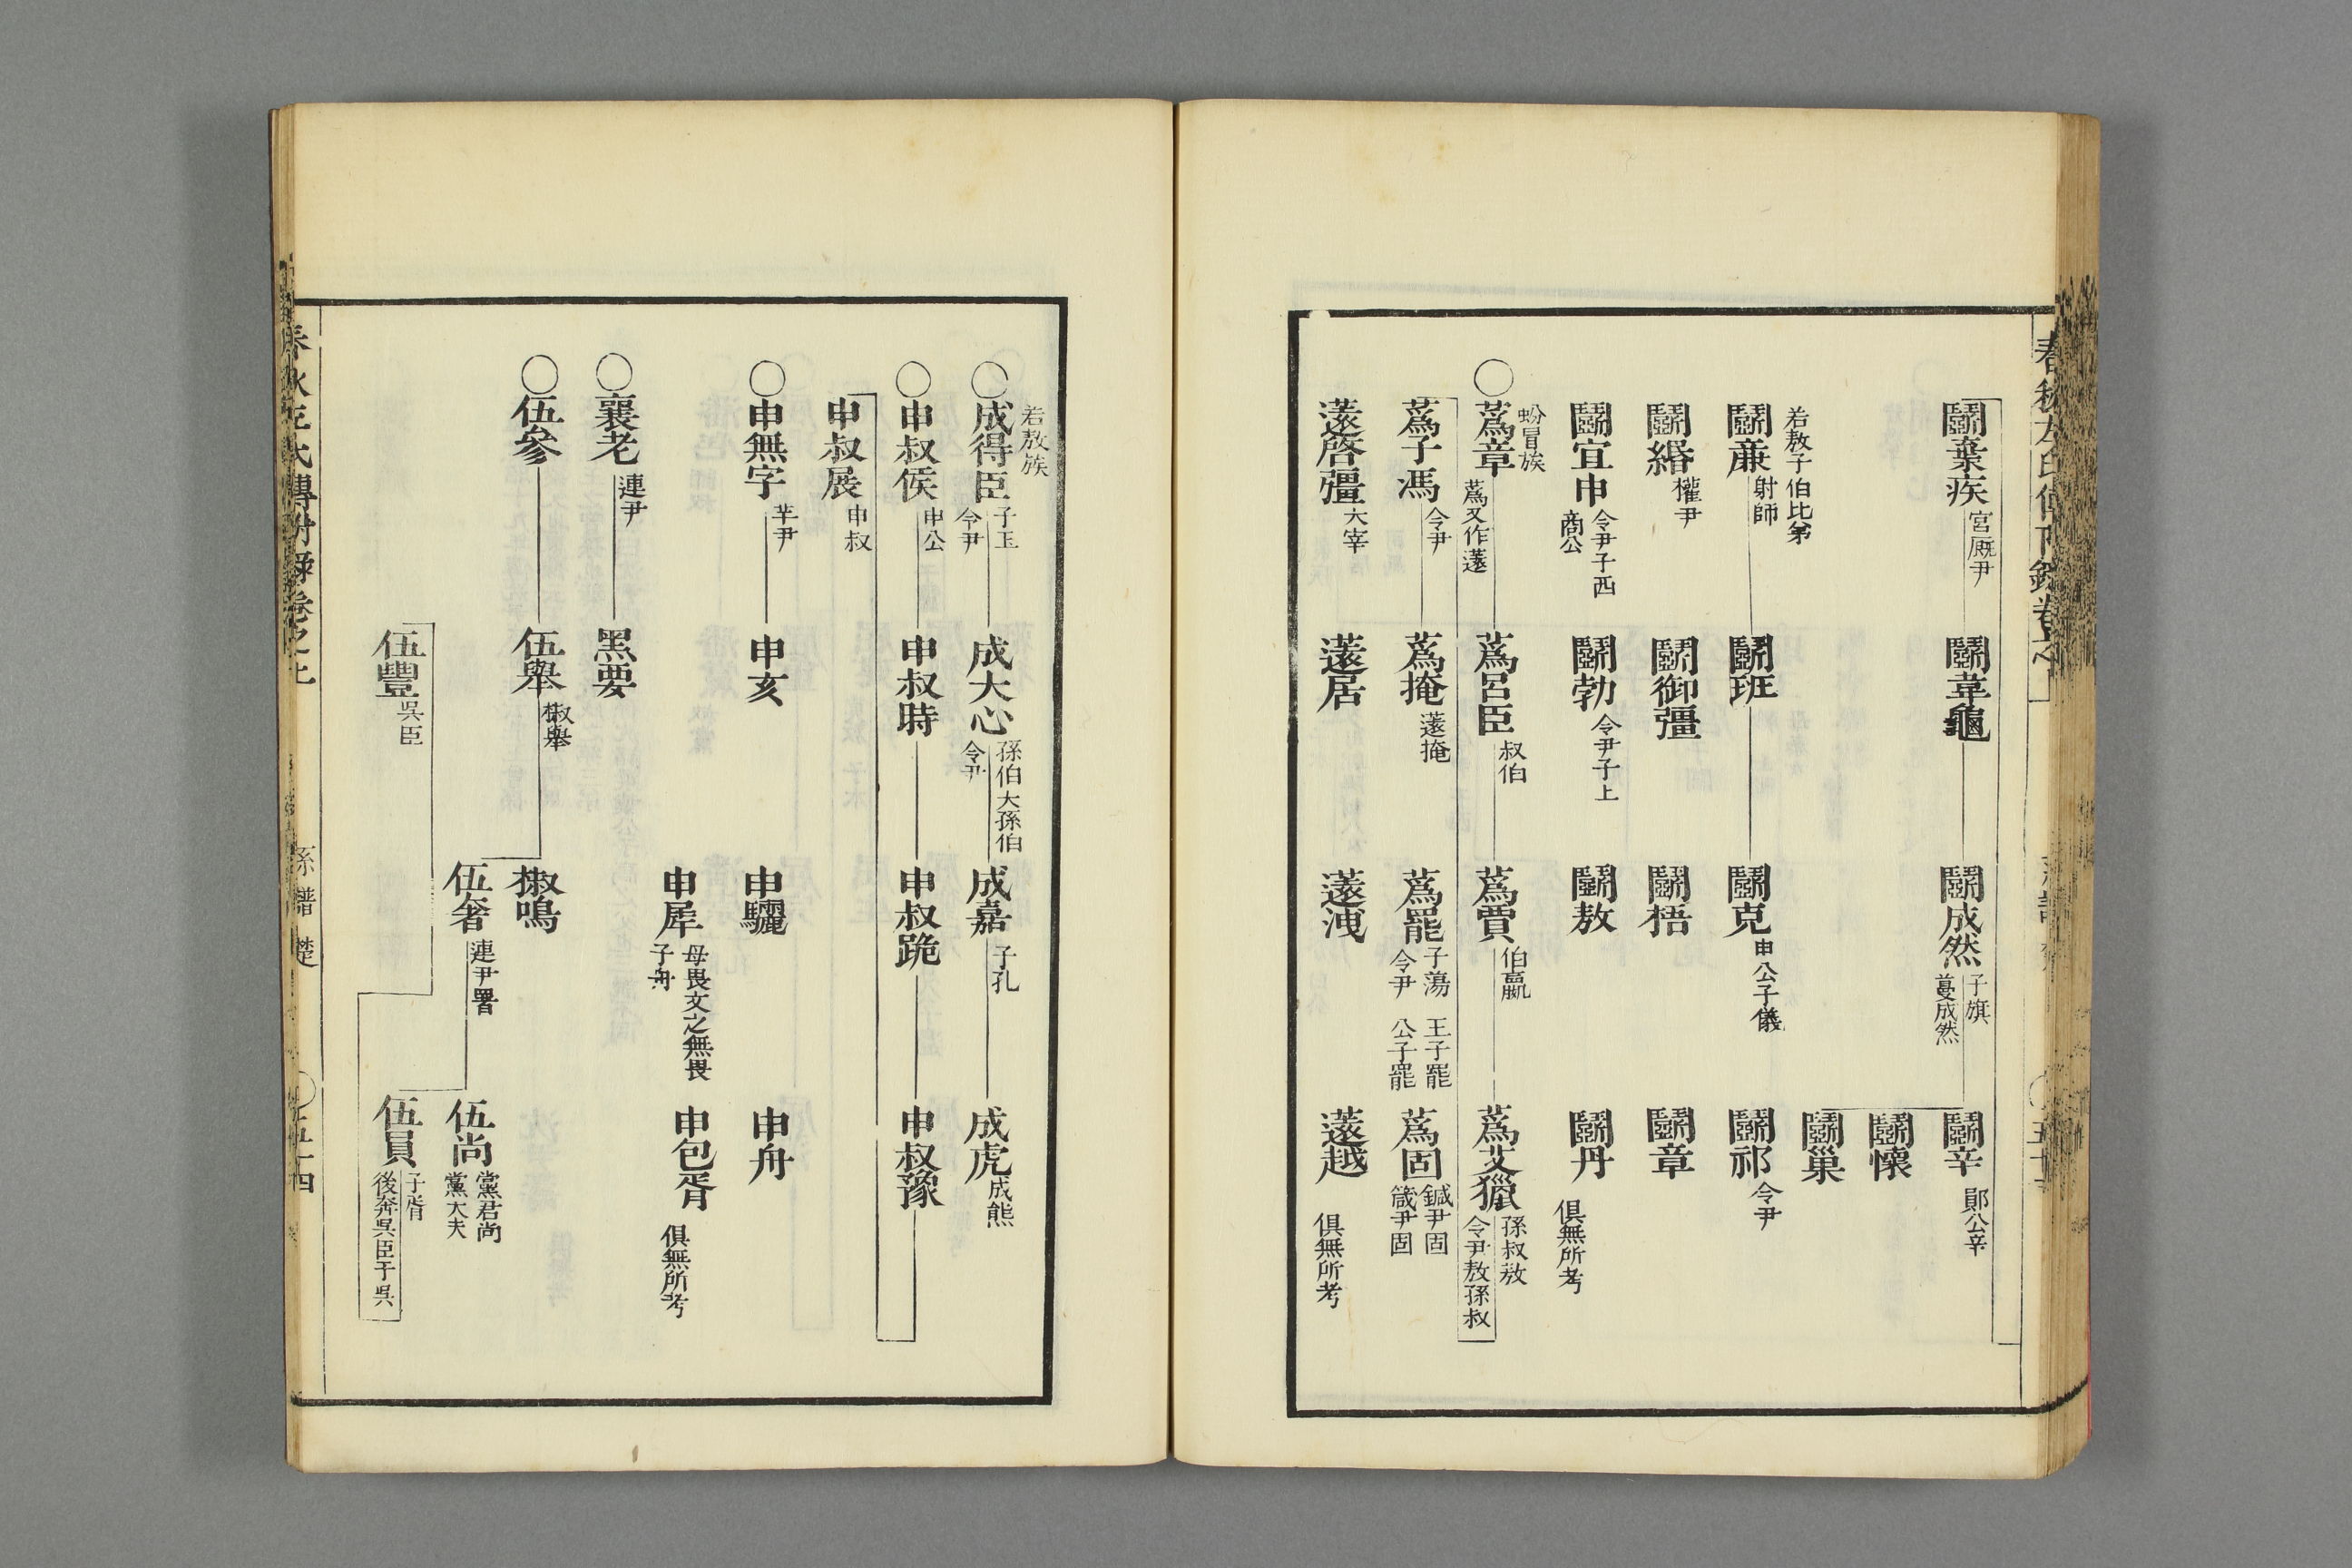 鬬棄疾 宮厩尹
鬬韋龜
鬬成然 子旗 蔓成然
鬬辛 鄖公辛
鬬懷
鬬巢
若敖子伯比弟
鬬廉 射師
鬬班
鬬克 申公子儀
鬬祁 令尹
鬬緡 權尹
鬬御彊
鬬梧
鬬章
鬬宜申 令尹子西 商公
鬬勃 令尹子上
鬬敖
鬬丹
俱無所考
蚡冒族
〇蒍章 蒍又作薳
蒍呂臣 叔伯
蒍賈 伯嬴
蒍艾獵 孫叔敖 令尹敖孫叔
蒍子馮 令尹
蒍掩 薳掩
蒍罷 子蕩 令尹 王子罷 公子罷
蒍固 鍼尹固 箴尹固
薳啓彊 大宰
薳居
薳洩
薳越
俱無所考
若敖族
〇成得臣 子玉 令尹
成大心 孫伯 大孫伯 令尹
成嘉 子孔
成虎 成熊
〇申叔侯 申公
申叔時
申叔跪
申叔豫
申叔展 申叔
〇申無宇 芋尹
申亥
申驪
申舟
申犀 母畏 文之無畏 子舟
申包胥
俱無所考
〇襄老 連尹
黑要
〇伍參
伍舉 椒舉
椒鳴
伍奢 連尹奢
伍尚 棠君尚 棠大夫
伍豐 吳臣
伍員 子胥 後奔吳臣于吳
春秋左氏傳附錄卷之上 系譜 楚 〇五十四